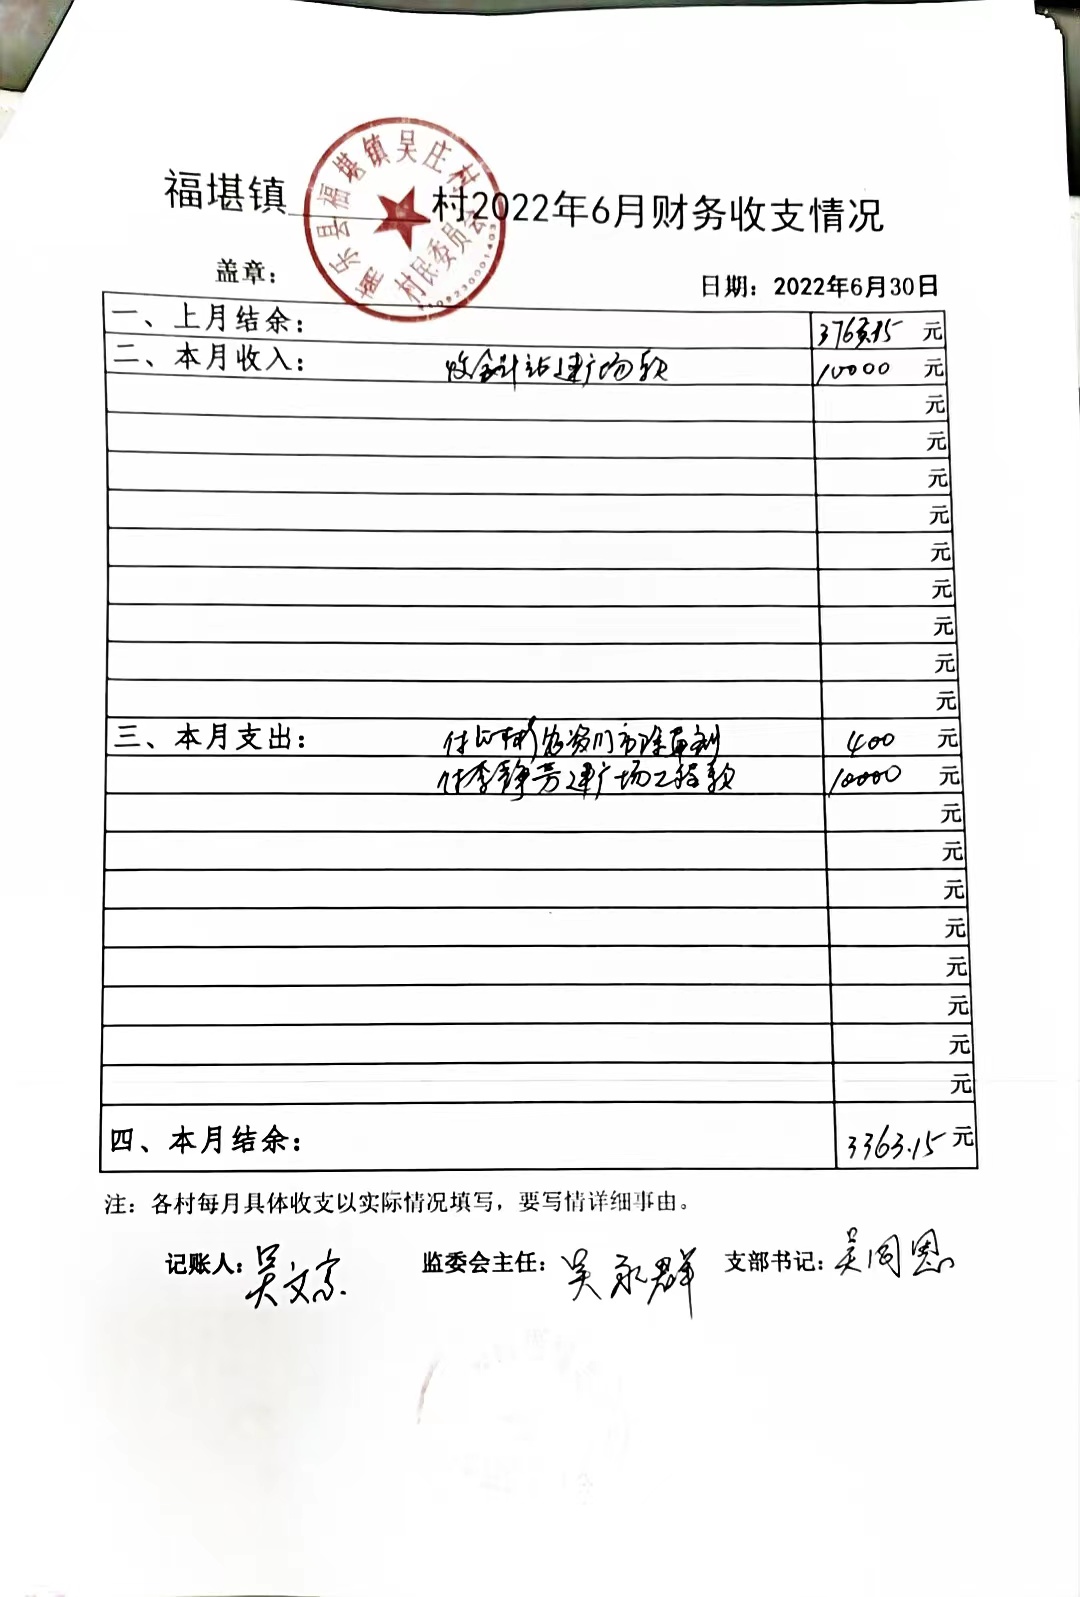 福堪镇 村2022年6月财务收支情况
南乐县福堪镇吴庄村
村民委员会
盖章： 日期：2022年6月30日
一、上月结余： 3763.15 元
二、本月收入： 收会计站建广场款 10000 元
元
元
元
元
元
元
元
元
元
三、本月支出： 付 农资门市除草剂 400 元
付李静芳建广场工程款 10000 元
元
元
元
元
元
元
元
元
四、本月结余： 3363.15 元
注：各村每月具体收支以实际情况填写，要写情详细事由。
记账人：吴文 监委会主任：吴永群 支部书记：吴同恩